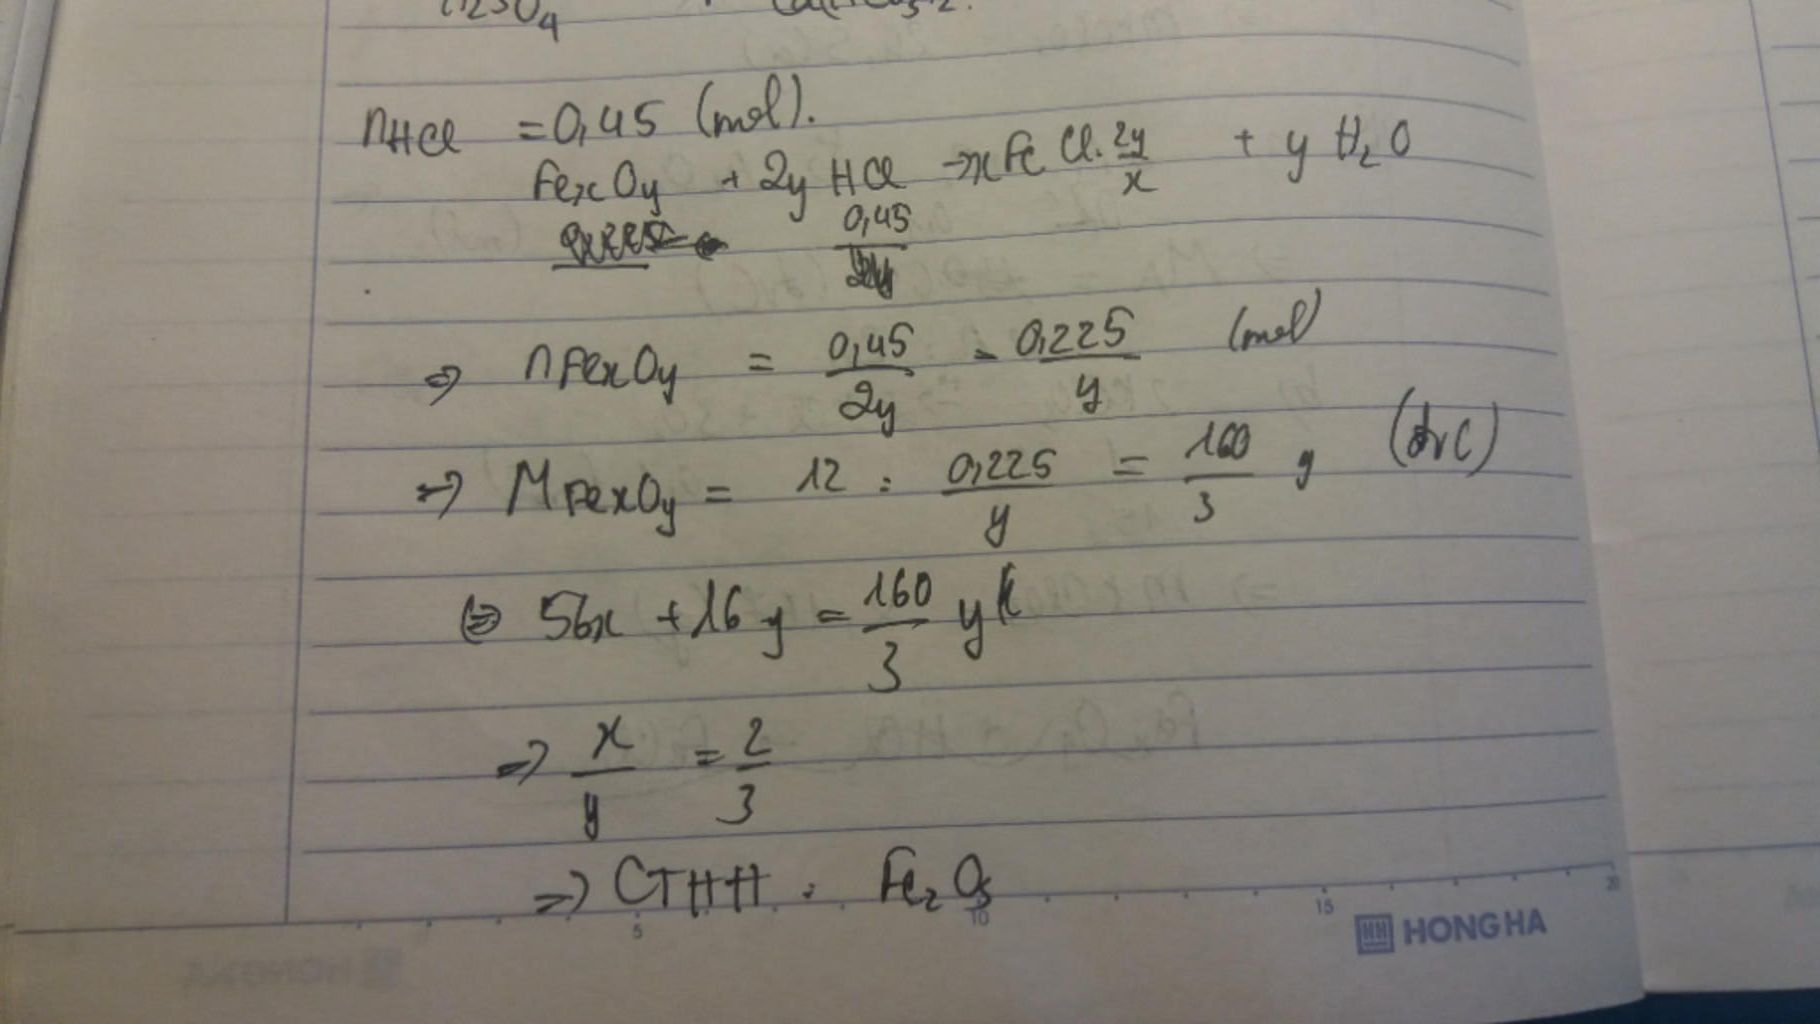 H2SO4
nHCl = 0,45 (mol).
FexOy + 2y HCl → xFeCl.2y/x + y H2O
0,45
⇒ nFexOy = 0,45/2y = 0,225/y (mol)
⇒ MFexOy = 12 : 0,225/y = 160/3 y (đvC)
⇔ 56x + 16y = 160/3 y
⇒ x/y = 2/3
⇒ CTHH : Fe2O3
5 10 15 20
HONG HA